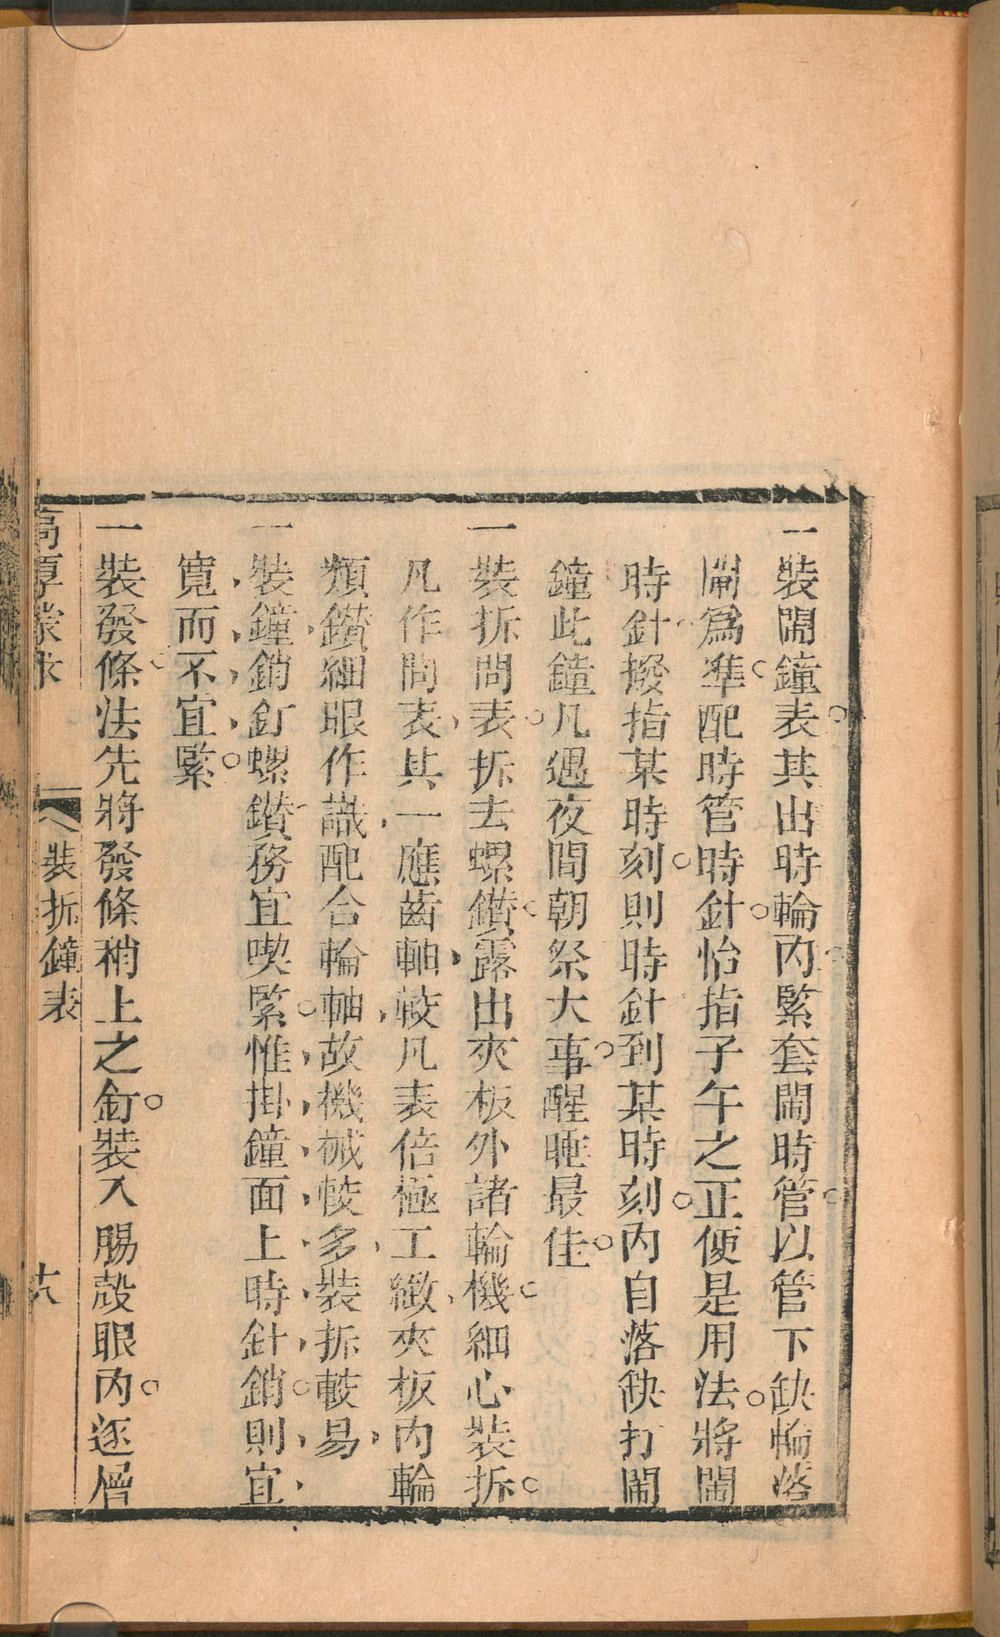 一裝鬧鐘表其出時輪內緊套鬧時管以管下缺輪落
鬧爲準配時管時針恰指子午之正便是用法將鬧
時針撥指某時刻則時針到某時刻內自落缺打鬧
鐘此鐘凡遇夜間朝祭大事醒睡最佳
一裝拆問表拆去螺鑽露出夾板外諸輪機細心裝拆
凡作問表其一應齒軸較凡表倍極工緻夾板內輪
類鑽細眼作識配合輪軸故機械較多裝拆較易
一裝鐘銷釘螺鑽務宜喫緊惟掛鐘面上時針銷則宜
寬而不宜緊
一裝發條法先將發條稍上之釘裝入腸殼眼內逐層
高厚蒙求
裝拆鐘表
十八